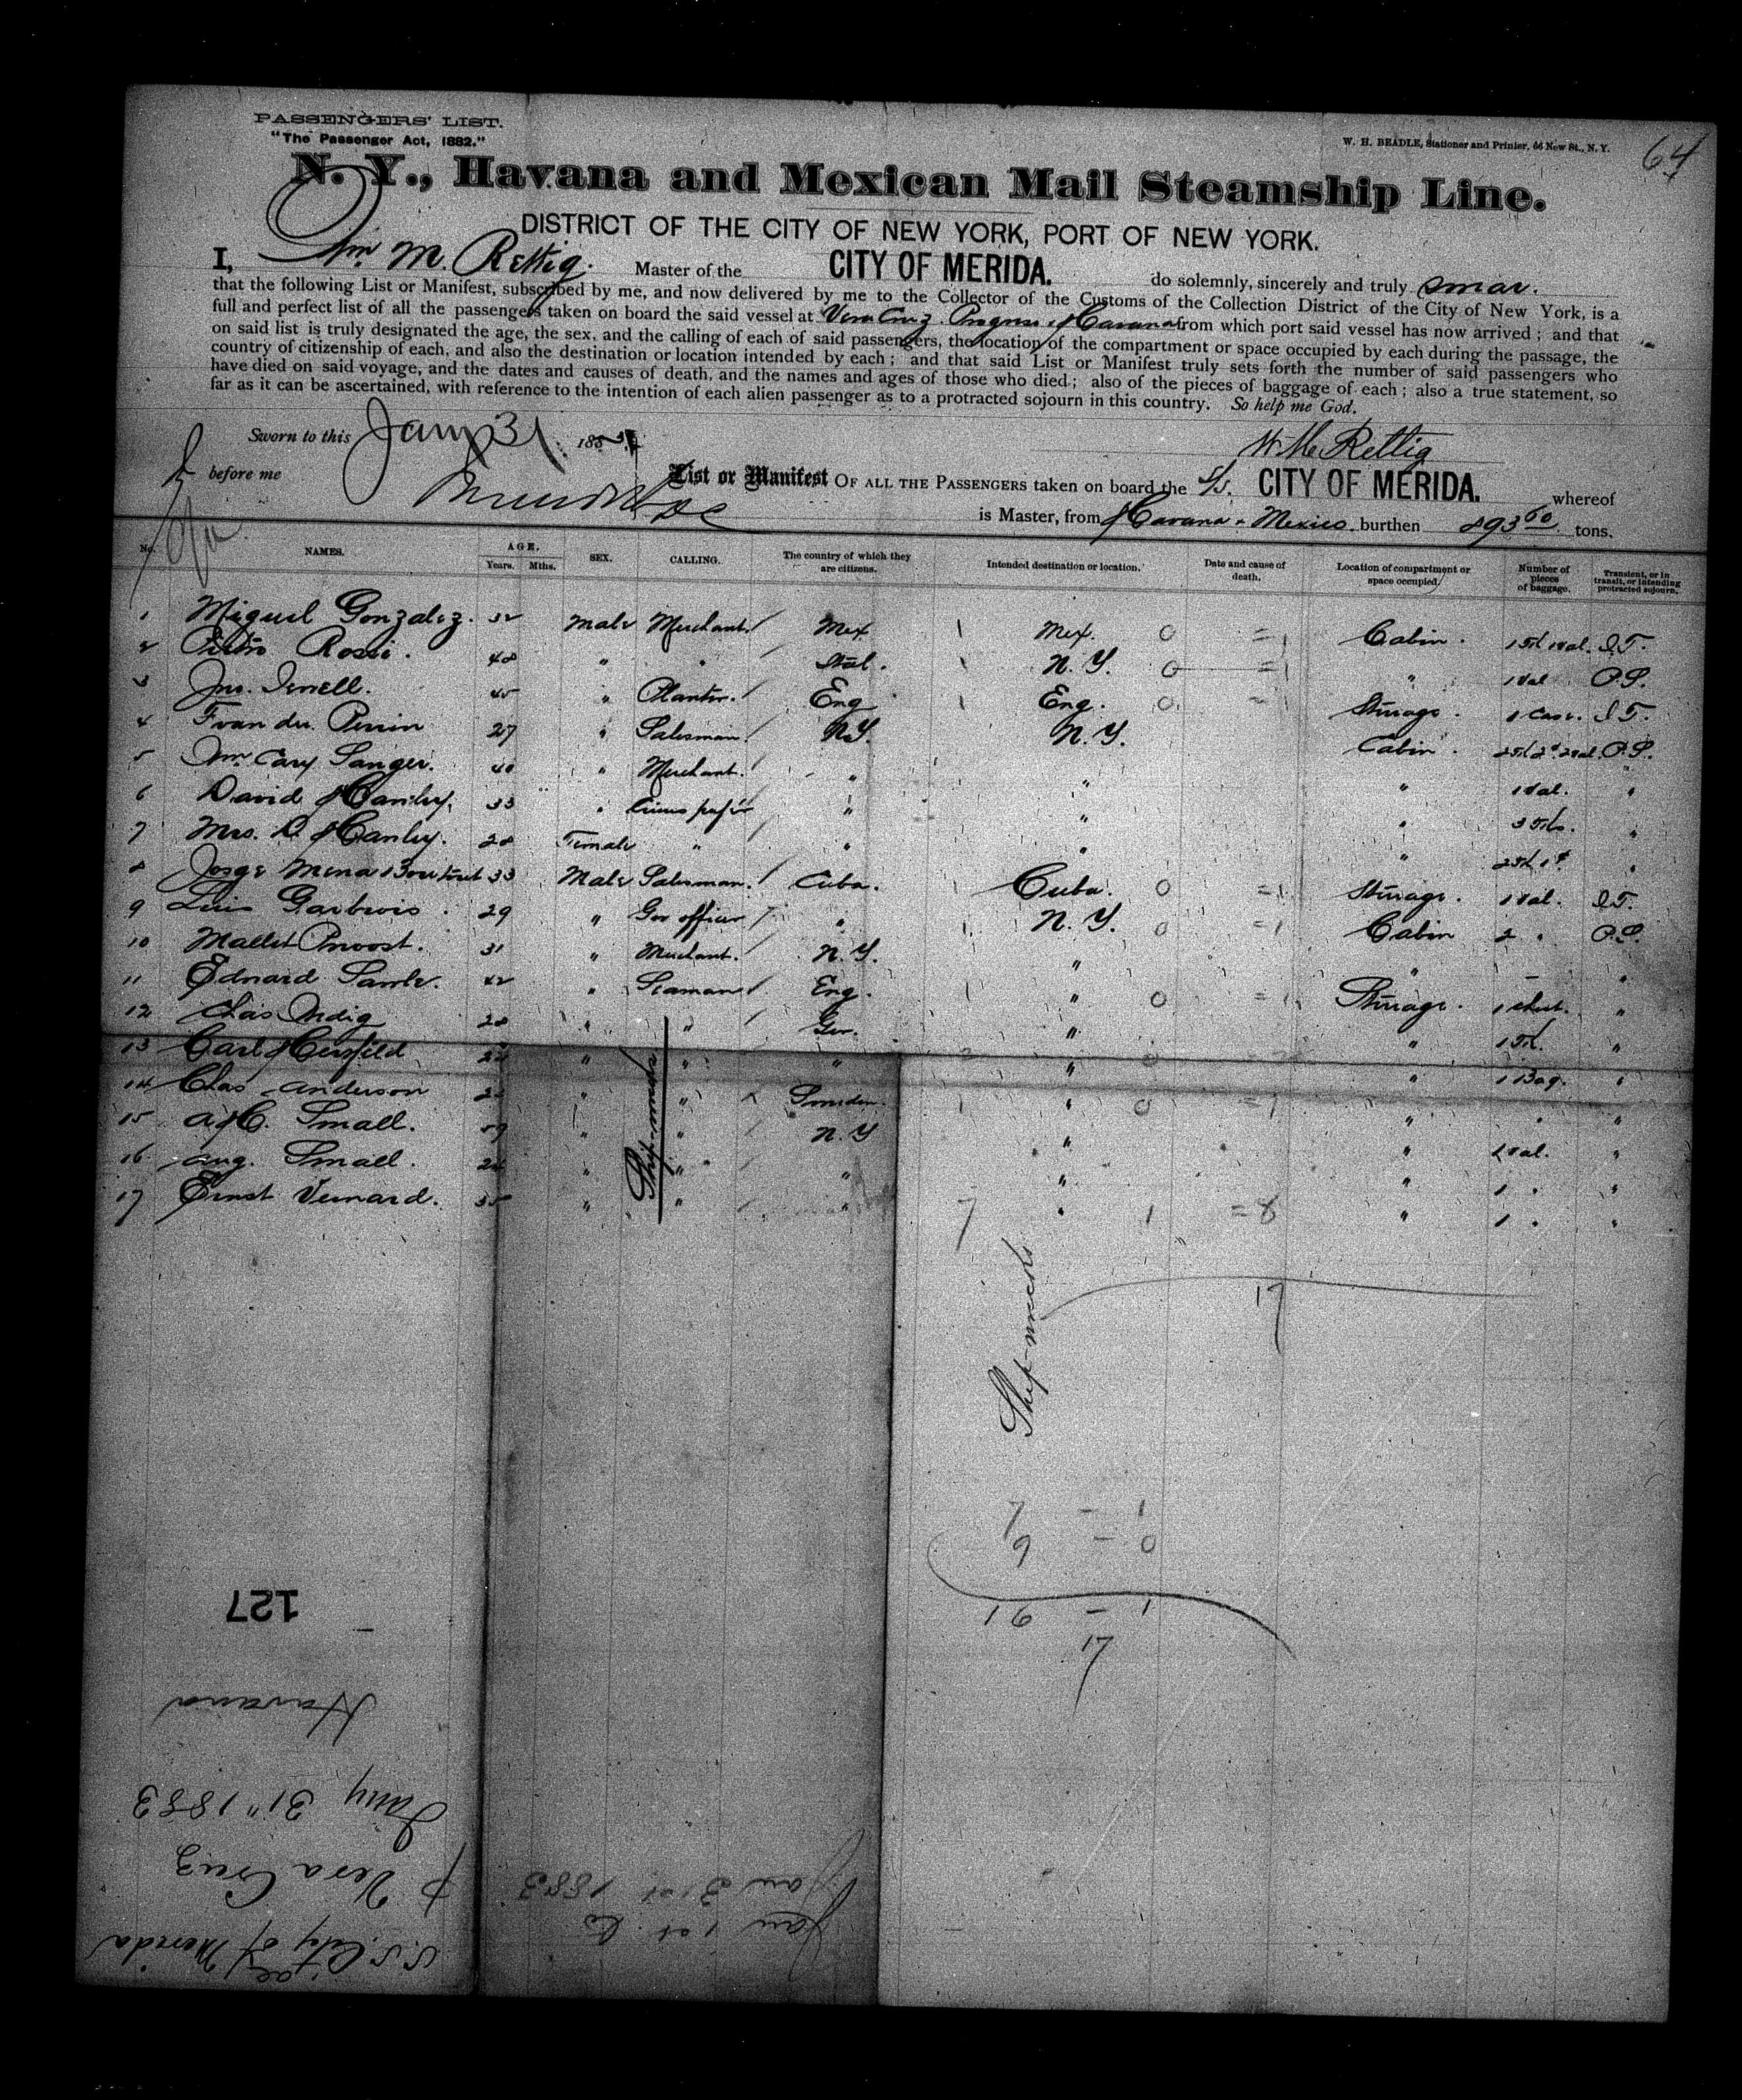 PASSENGERS' LIST.
"The Passenger Act, 1882."
W. H. BEADLE, Stationer and Printer, 66 New St., N. Y.
64
N. Y., Havana and Mexican Mail Steamship Line.
DISTRICT OF THE CITY OF NEW YORK, PORT OF NEW YORK.
I, Wm M. Rettig. Master of the CITY OF MERIDA. do solemnly, sincerely and truly swear.
that the following List or Manifest, subscribed by me, and now delivered by me to the Collector of the Customs of the Collection District of the City of New York, is a
full and perfect list of all the passengers taken on board the said vessel at Vera Cruz Progreso & Havana from which port said vessel has now arrived; and that
on said list is truly designated the age, the sex, and the calling of each of said passengers, the location of the compartment or space occupied by each during the passage, the
country of citizenship of each, and also the destination or location intended by each; and that said List or Manifest truly sets forth the number of said passengers who
have died on said voyage, and the dates and causes of death, and the names and ages of those who died; also of the pieces of baggage of each; also a true statement, so
far as it can be ascertained, with reference to the intention of each alien passenger as to a protracted sojourn in this country. So help me God.
Sworn to this Jany 31 188
W. M. Rettig
before me
List or Manifest OF ALL THE PASSENGERS taken on board the S/S. CITY OF MERIDA. whereof
is Master, from Havana & Mexico burthen 1893 60 tons.
No. NAMES. AGE. Years. Mths. SEX. CALLING. The country of which they are citizens. Intended destination or location. Date and cause of death. Location of compartment or space occupied. Number of pieces of baggage. Transient, or in transit, or intending protracted sojourn.
1 Miguel Gonzalez. 32 Male Merchant. Mex 1 Mex. 0 =1 Cabin. 1 Val. I.T.
2 Pietro Rossi. 48 " " Ital. 1 N.Y. 0 =1 " 1 Val P.S.
3 Jno. 45 " Planter. Eng Eng. 0 =1 Steerage. 1 Case. I.T.
4 F van der Perrin 27 " Salesman. N.Y. N.Y. Cabin. P.S.
5 Wm Cary Sanger. 40 " Merchant. " " " 1 Val. "
6 David Hanley. 33 " Circus " " " "
7 Mrs. D. Hanley. 28 Female " " " " "
8 Jorge Mena 33 Male Salesman. Cuba. Cuba. 0 =1 Steerage. 1 Val. I.T.
9 Luis 29 " Gov officer " 1 N.Y. 0 =1 Cabin 2 " P.S.
10 Mallet Provost. 31 " Merchant. N.Y. " " — "
11 Edward 42 " Seaman Eng. " 0 =1 Steerage. 1 Chest. "
12 Chas 28 " " Ger. " " "
13 Carl 24 " " " 2 " 0 " 1 Bag. "
14 Chas Anderson " " Sweden. 1 " 0 =1 " " "
15 A. H. C. Small. 59 " " N.Y " " 1 Val. "
16 Aug. Small. 24 " " " " " 1 " "
17 Ernst 35 " " " 7 " 1 =8 " 1 " "
Ship-wrecks
Ship-wrecks
17
7 – 1
9 – 0
16 – 1
17
127
Havana
Jany 31" 1883
Vera Cruz
S.S. City of Merida
Jan 31st 1883
Jan 1st